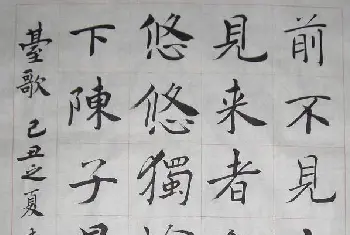 前不見
見来者
悠悠獨
下陳子
臺歌 己丑之夏